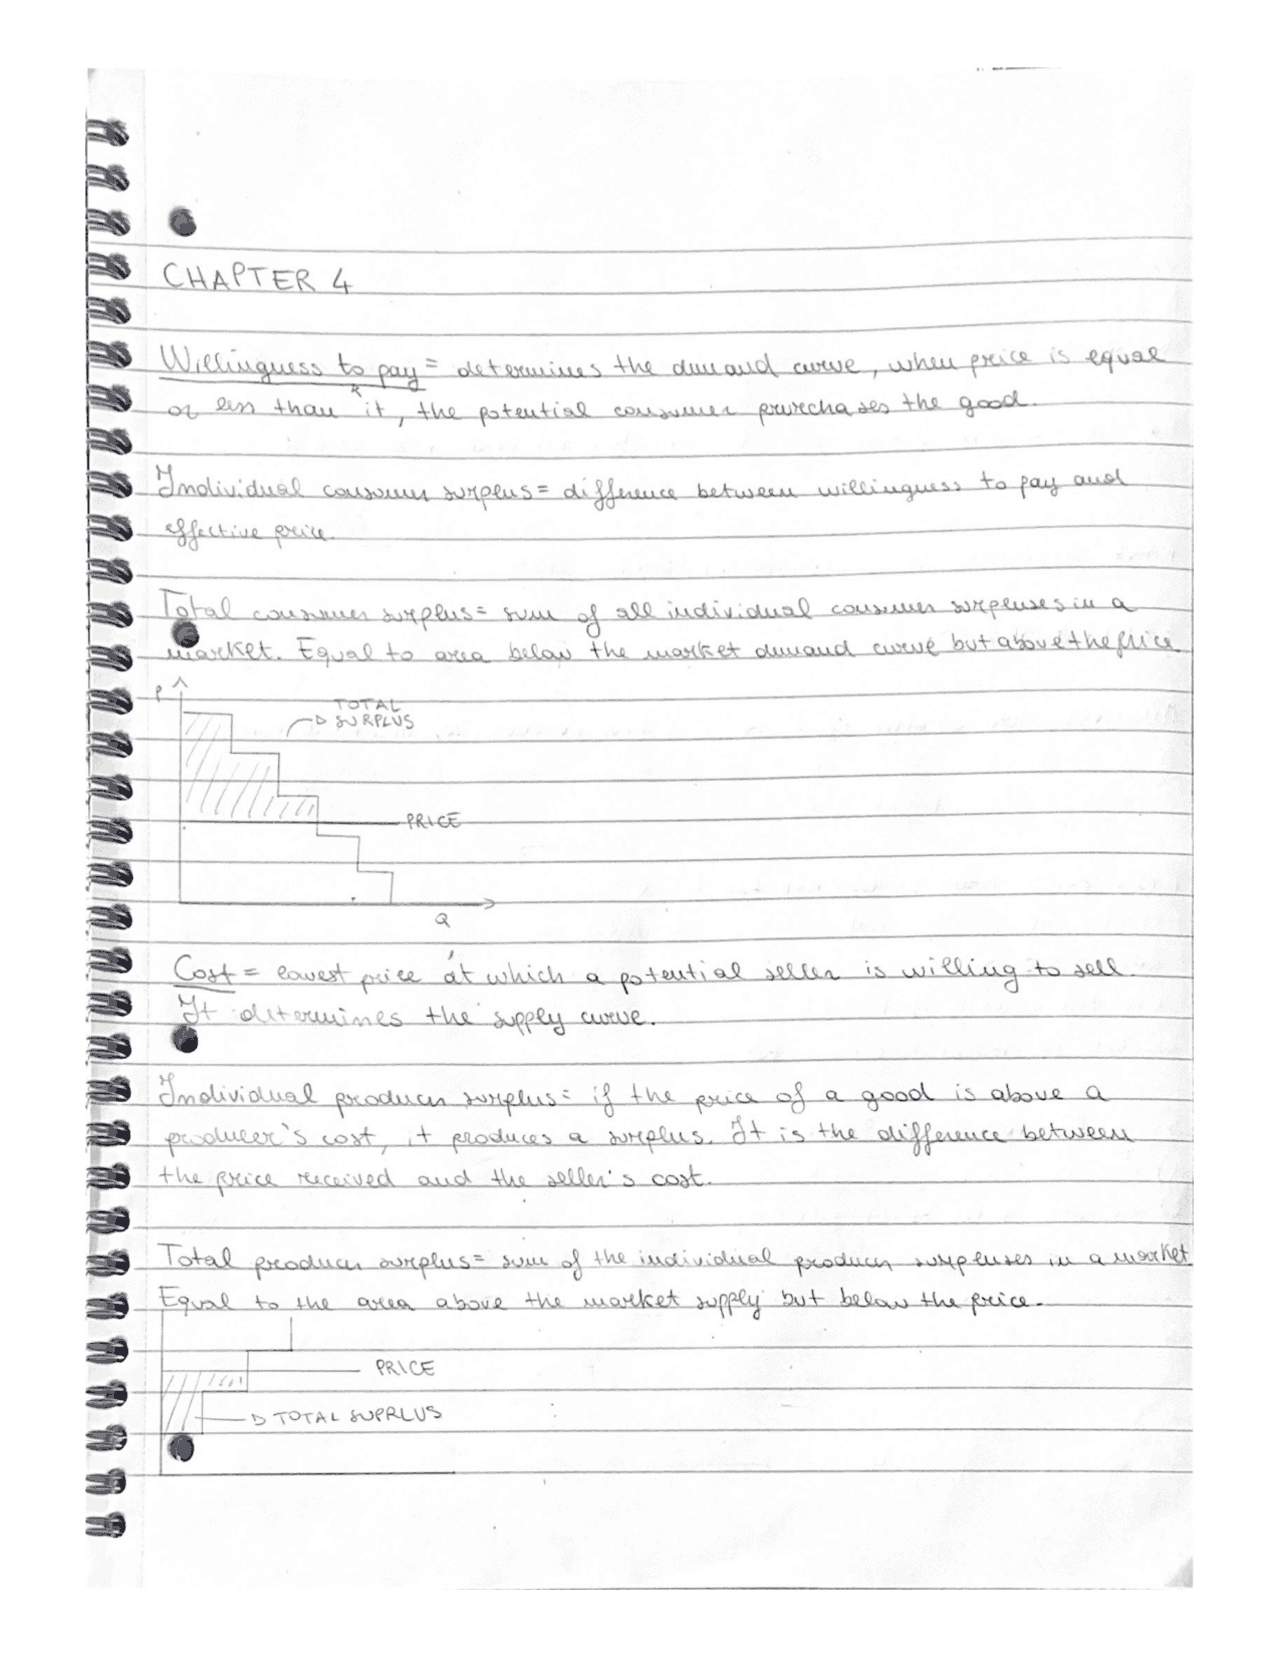 CHAPTER 4
Willingness to pay = determines the demand curve, when price is equal
or less than it, the potential consumer purechases the good.
Individual consumer surplus = difference between willingness to pay and
effective price.
Total consumer surplus = sum of all individual consumer surpluses in a
market. Equal to area below the market demand curve but above the price
P
TOTAL
SURPLUS
PRICE
Q
Cost = lowest price at which a potential seller is willing to sell.
It determines the supply curve.
Individual producer surplus = if the price of a good is above a
producer's cost, it produces a surplus. It is the difference between
the price received and the seller's cost.
Total producer surplus = sum of the individual producer surpluses in a market.
Equal to the area above the market supply but below the price.
PRICE
TOTAL SUPRLUS